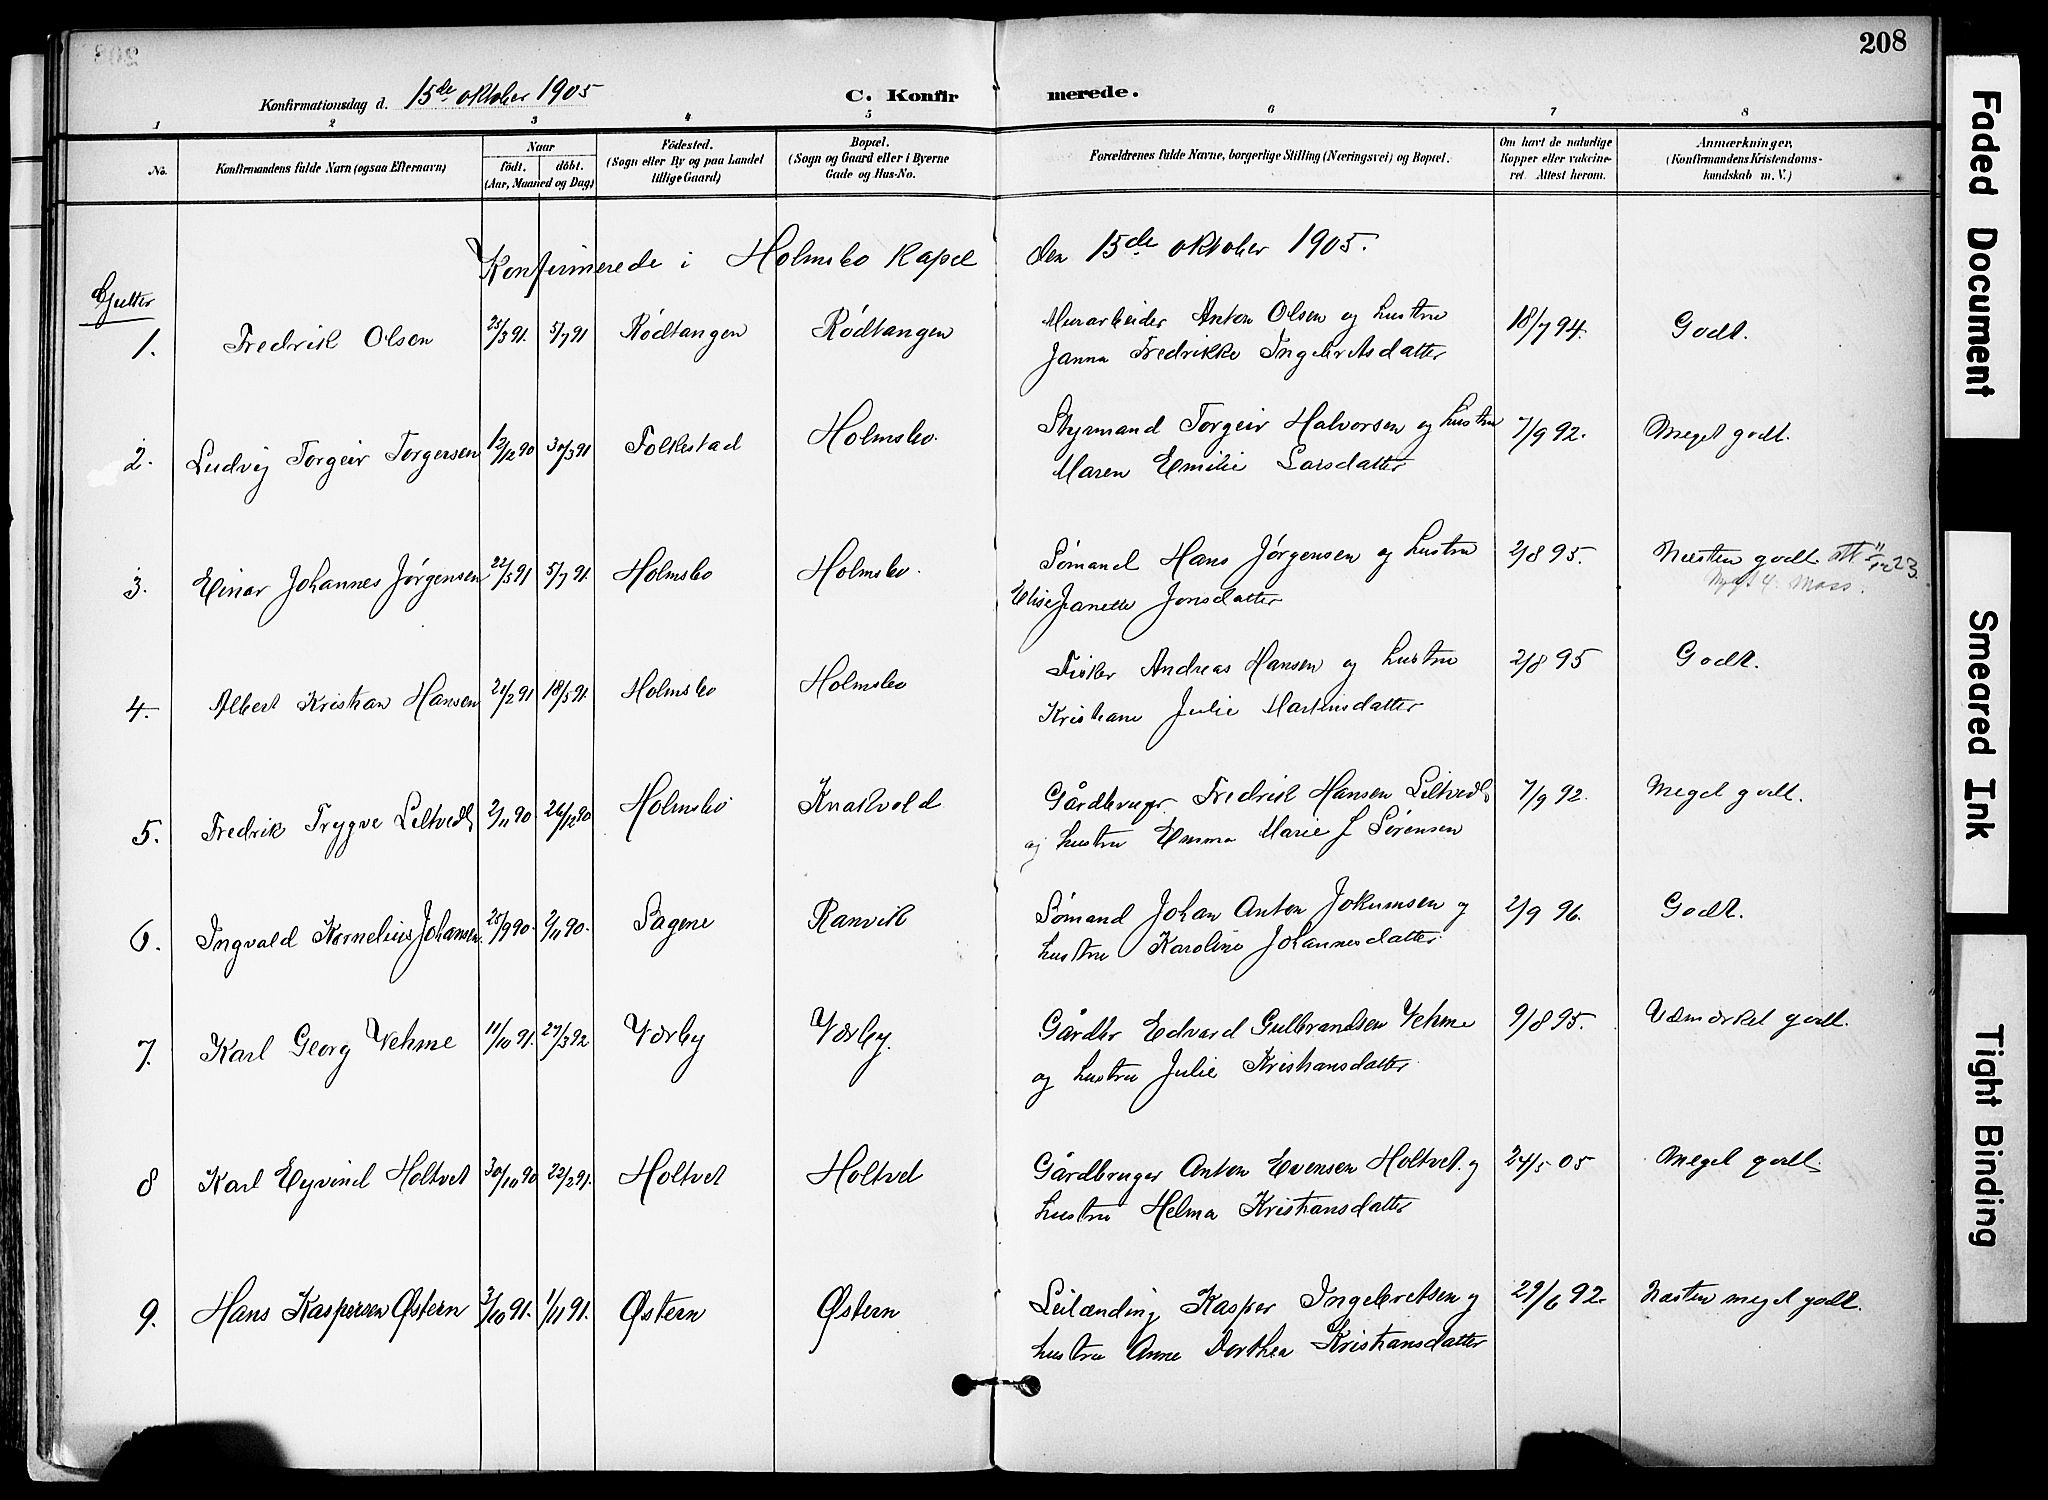 208
Konfirmationsdag d. 15de oktober 1905
C. Konfirmerede.
1 2 3 4 5 6 7 8
No.
Konfirmandens fulde Navn (ogsaa Efternavn)
Naar
födt. döbt.
(Aar, Maaned og Dag)
Födested.
(Sogn eller By og paa Landet
tillige Gaard)
Bopæl.
(Sogn og Gaard eller i Byerne
Gade og Hus-No.
Forældrenes fulde Navne, borgerlige Stilling (Næringsvei) og Bopæl.
Om havt de naturlige
Kopper eller vaccine-
ret. Attest herom.
Anmærkninger.
(Konfirmandens Kristendoms-
kundskab m. V.)
Konfirmerede i Holmsbo Kapel den 15de oktober 1905.
Gutter
1. Fredrik Olsen 25/3 91. 5/7 91 Rødtangen Rødtangen Murarbeider Anton Olsen og hustru 18/7 94. Godt.
Janna Fredrikke Ingebretsdatter
2. Ludvig Torgeir Torgersen 12/12 90 30/3 91 Folkestad Holmsbo. Styrmand Torgeir Halvorsen og hustru 7/9 92. Meget godt.
Maren Emilie Larsdatter
3. Einar Johannes Jørgensen 22/5 91 5/7 91. Holmsbo Holmsbo. Sømand Hans Jørgensen og hustru 2/8 95. Næsten godt
Elise Janette Jonsdatter Moss.
4. Albert Kristian Hansen 21/2 91 18/5 91. Holmsbo Holmsbo Fisker Andreas Hansen og hustru 2/8 95 Godt.
Kristiane Julie Martinsdatter
5. Fredrik Trygve Letvedt 2/11 90 26/12 90 Holmsbo Knatvold Gårdbruger Fredrik Hansen Letvedt 7/9 92. Meget godt.
og hustru Emma Marie f Sørensen
6. Ingvald Kornelius Johansen. 25/9 90. 2/11 90. Sagene Ranvik Sømand Johan Anton Jokumsen og 2/9 96. Godt.
hustru Karoline Johannesdatter
7. Karl Georg Vehme 11/10 91. 27/3 92 Værby Værby. Gårdbr Edvard Gulbrandsen Vehme 9/8 95. Udmærket godt.
og hustru Julie Kristiansdatter
8 Karl Eyvind Holtvet 30/10 90 22/2 91. Holtvet Holtvet Gårdbruger Anton Evensen Holtvet. og 24/5 05 Meget godt.
hustru Helma Kristiansdatter
9. Hans Kaspersen Østern 3/10 91. 1/11 91. Østern Østern Leilænding Kasper Ingebretsen og 29/6 92. Næsten meget godt.
hustru Anne Dorthea Kristiansdatter
Faded Document
Smeared Ink
Tight Binding